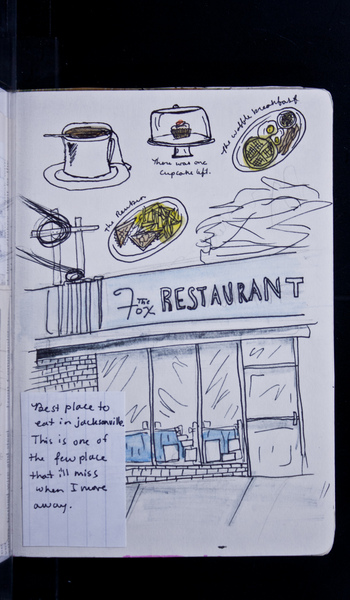 The waffle breakfast
There was one
cupcake left.
The Reuben
The
Fox RESTAURANT
Best place to
eat in jacksonville
This is one of
the few place
that i'll miss
when I move
away.